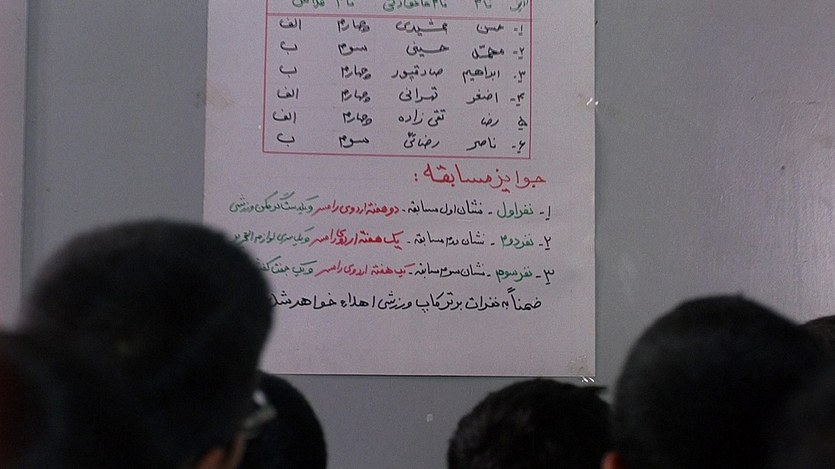 نام نام خانوادگی نام کلاس
۱- حسن جمشیدی چهارم الف
۲- حسینی سوم ب
۳- ابراهیم صادقپور چهارم ب
۴- اصغر تهرانی چهارم الف
۵- رضا تقی زاده چهارم الف
۶- ناصر رضائی سوم ب
جوایز مسابقه :
۱- نفر اول - نشان اول مسابقه - دو هفته اردوی رامسر و یکدست گرمکن ورزشی
۲- نفر دوم - نشان دوم مسابقه - یک هفته اردوی رامسر و یک سری لوازم التحریر
۳- نفر سوم - نشان سوم مسابقه - یک هفته اردوی رامسر و یک جفت
ضمناً به نفرات برتر کاپ ورزشی اهداء خواهد شد